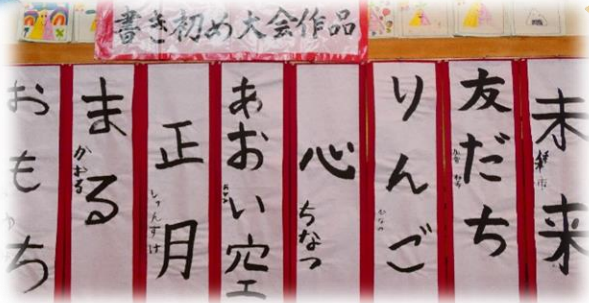 書き初め大会作品
未来
友だち
りんご
心
ちなつ
あおい空
正月
しゅんすけ
まる
かおる
おもち